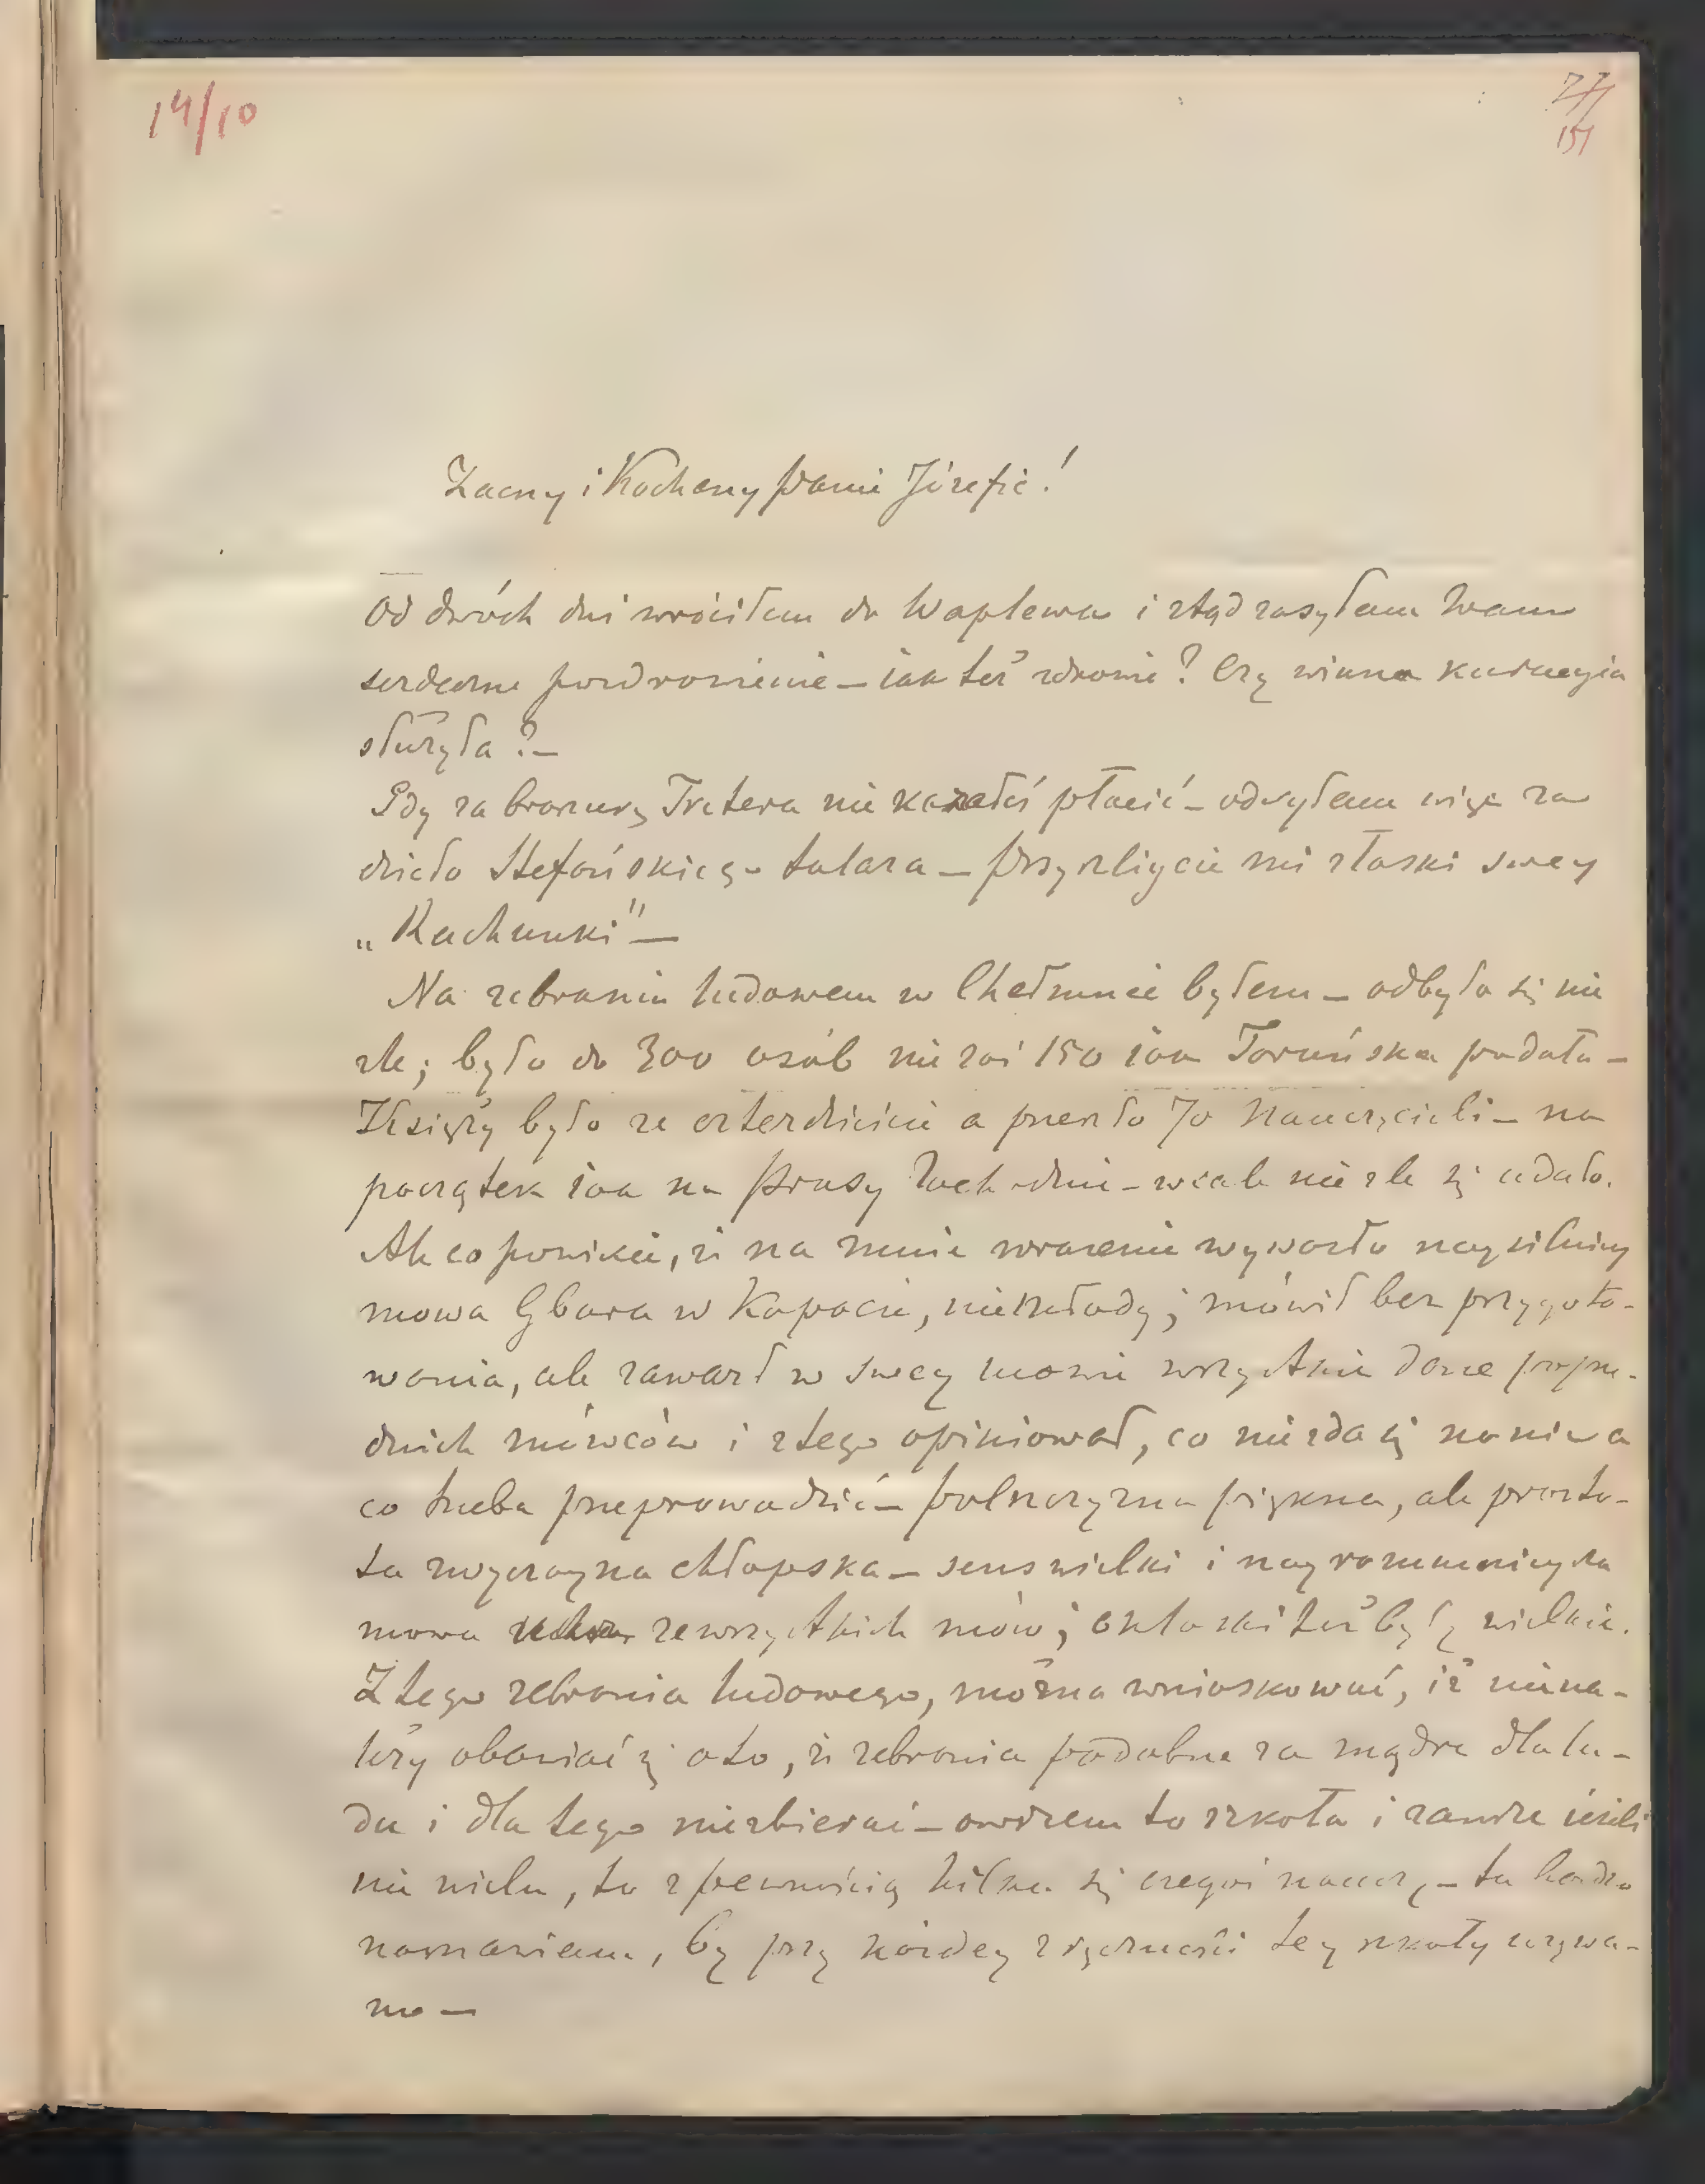 14/10
77
151
Zacny i Kochany Panie Józefie!
Od dwóch dni wróciłem do Waplewa i ztąd zasyłam Wam
serdeczne pozdrowienie – iak też zdrowie? Czy winna kuracyia
służyła? –
Gdy za broszurę Tretera nie kazałeś płacić – odsyłam więc za
dzieło Stefańskiego talara – przyszliycie mi złaski swey
„Rachunki" –
Na zebraniu ludowem w Chełmnie byłem – odbyło się nie
zle; było do 300 osób nie zaś 150 iak Toruńska podała –
Księży było ze czterdzieście a przeszło 70 Nauczycieli – na
początek iak na Prusy Zachodnie – wcale nie zle się udało.
Ale co powiecie, iż na mnie wrażenie wywarło naysilniey
mowa Gbura w Kapocie, niemłody; mówił bez przygoto-
wania, ale zawarł w swey mowie wszystkie dane poprze-
dnich mówców i ztego opiniował, co niezda się na nic a
co trzeba przeprowadzić – polszczyzna piękna, ale prosto-
ta zwyczayna chłopska – sens wielki i nayrozumnieysza
mowa ze wszystkich mów; oklaski też były wielkie.
Z tego zebrania ludowego, można wnioskować, iż niena-
leży obawiać się oto, iż zebrania podobne za mądre dla lu-
du i dla tego niezbierać – owszem to szkoła i zawsze ieżeli
nie wielu, to z pewnością kilku się czegoś nauczy – tu bardzo
namawiam, by przy każdey zręczności tey szkoły używa-
no –